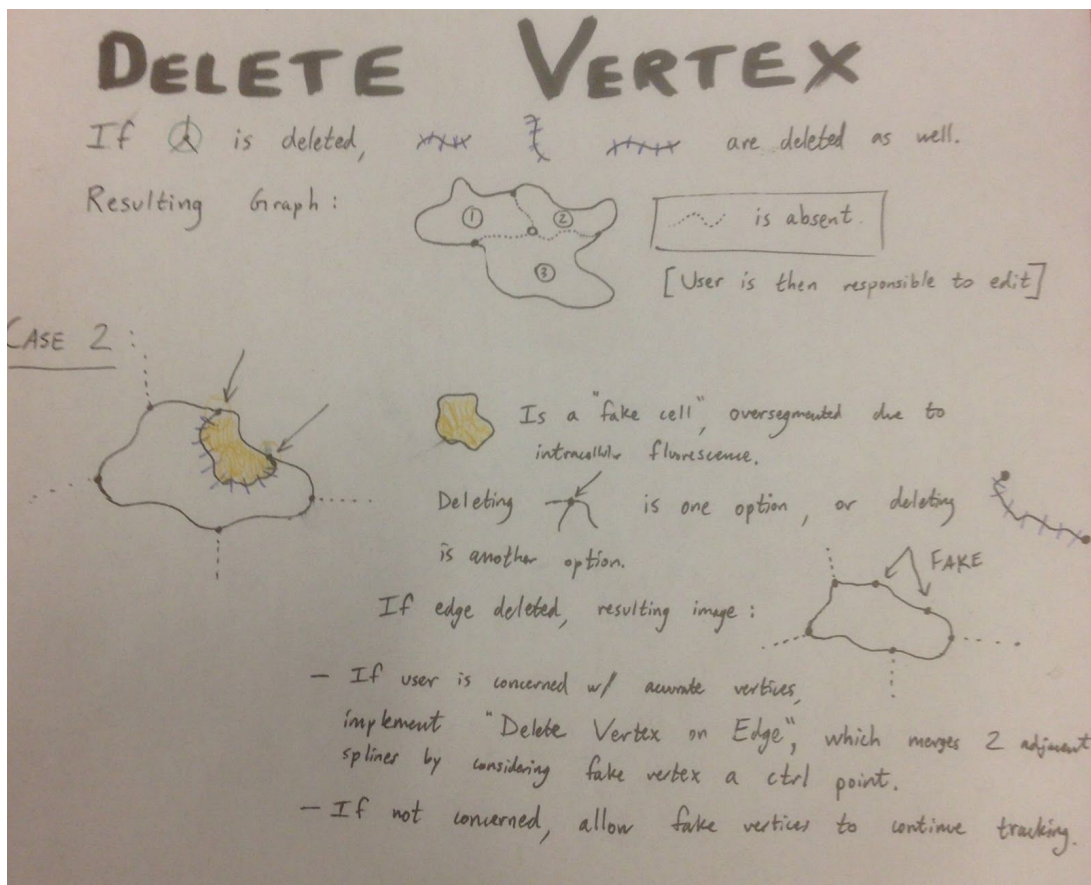 DELETE VERTEX
If is deleted, are deleted as well.
Resulting Graph:
1 2 3
is absent.
[User is then responsible to edit]
CASE 2
Is a "fake cell", oversegmented due to
intracellular flurescence.
Deleting is one option, or deleting
is another option.
FAKE
If edge deleted, resulting image:
- If user is concerned w/ accurate vertices,
implement "Delete Vertex on Edge", which merges 2 adjacent
splines by considering fake vertex a ctrl point.
- If not concerned, allow fake vertices to continue tracking.